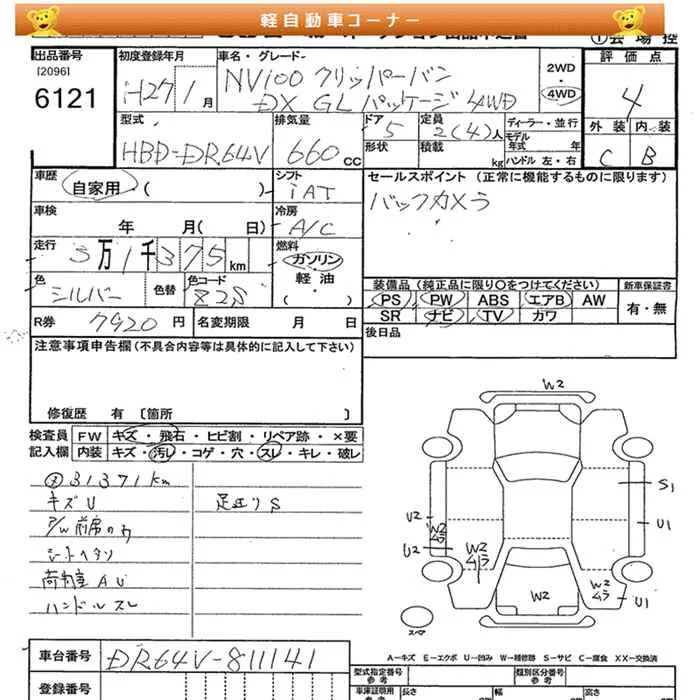 軽自動車コーナー
①会場控
出品番号
[2096]
6121
初度登録年月
H27 1 月
車名・グレード
NV100 クリッパーバン
DX GL パッケージ 4WD
2WD
・
4WD
評価点
4
外装 内装
C B
型式
HBD-DR64V
排気量
660 cc
ドア
5
定員
2(4)人
ディーラー・並行
形状
積載
kg
モデル
年式 年
ハンドル 左・右
車歴
自家用 ( )
シフト
iAT
セールスポイント (正常に機能するものに限ります)
バックカメラ
車検
年 月( 日)
冷房
A/C
走行
3万1千375km
燃料
ガソリン
軽油
( ・ )
色
シルバー
色替
色コード
Z2S
装備品(純正品に限り○をつけてください)
新車保証書
PS PW ABS エアB AW
SR ナビ TV カワ
有・無
R券 7920 円
名変期限 月 日
後日品
注意事項申告欄(不具合内容等は具体的に記入して下さい)
修復歴 有 〔箇所 〕
検査員
記入欄
FW キズ・飛石・ヒビ割・リペア跡・×要
内装 キズ・汚レ・コゲ・穴・スレ・キレ・破レ
31371km
キズU
P/W前席のカ
シートヘタリ
荷物室AU
ハンドルスレ
足廻りS
W2
S1
U2
W2
ムラ
U1
U2
W2
ムラ
W2
W2
ムラ
U1
スペア
A=キズ E=エクボ U=凹み W=補修跡 S=サビ C=腐食 XX=交換済
車台番号
DR64V-811141
登録番号
型式指定番号
参考
類別区分番号
参考
車庫証明用
参考
長さ
幅
高さ